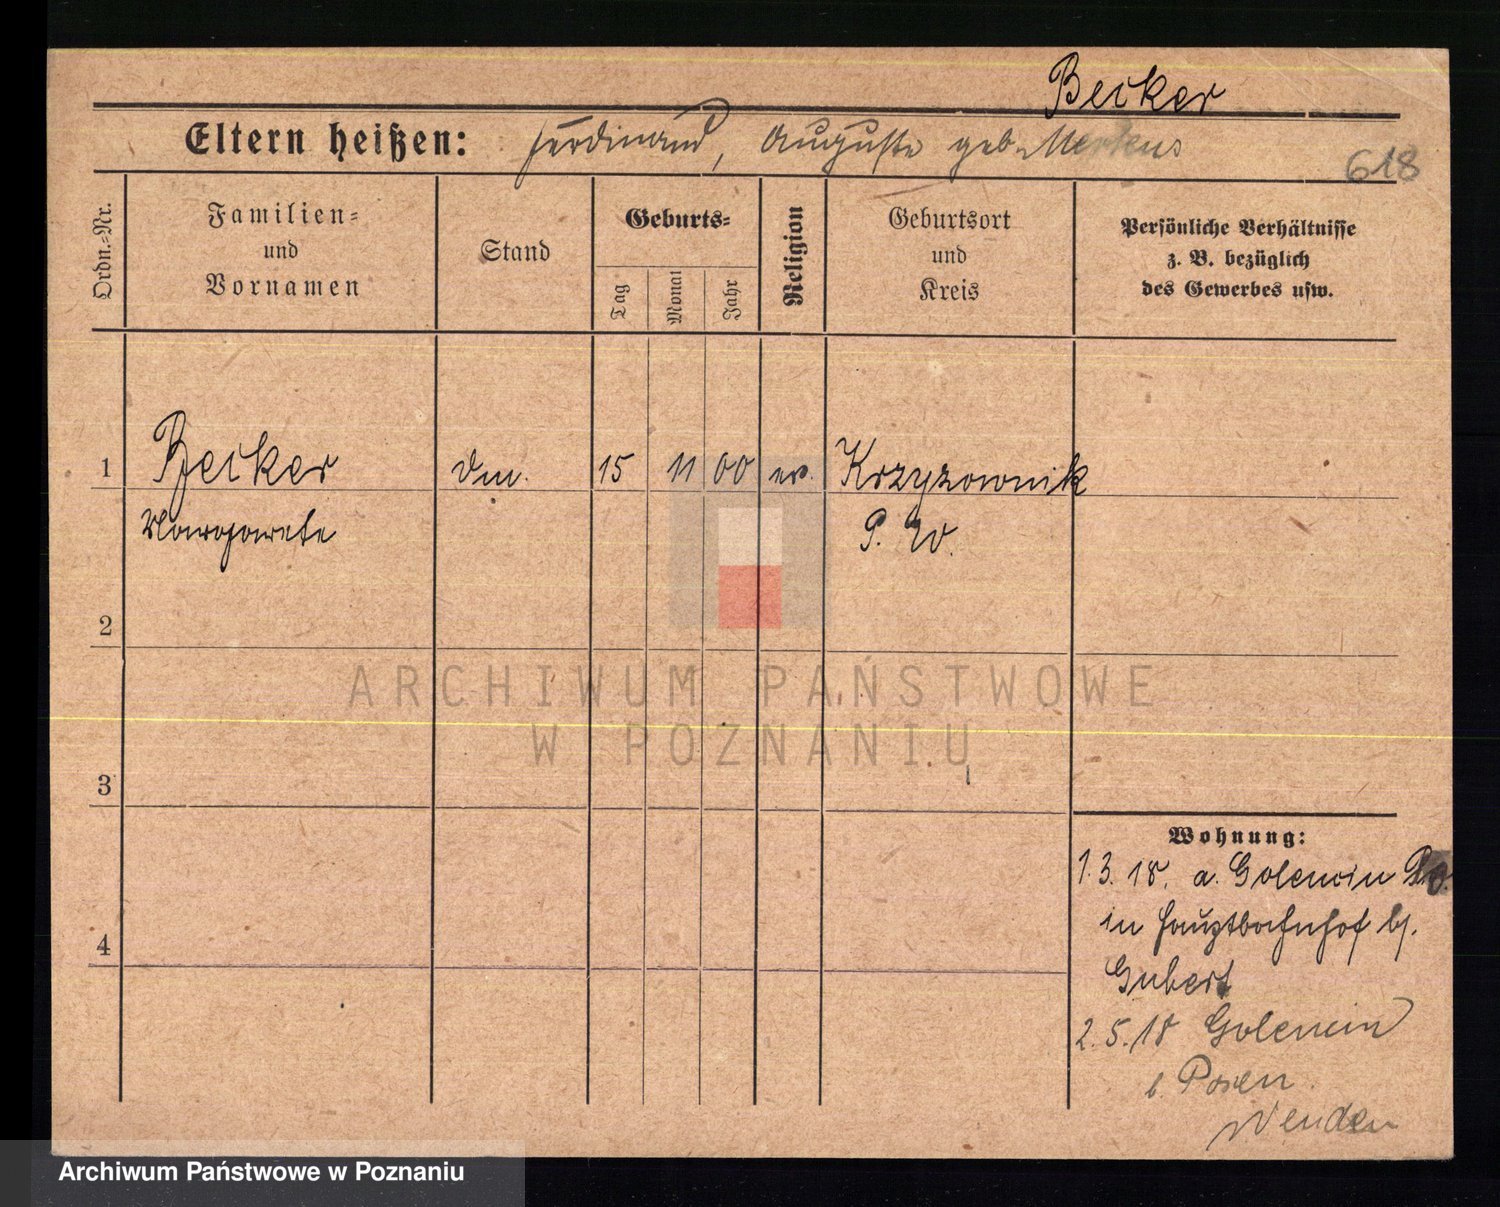 Becker
Eltern heißen: Ferdinand, Auguste geb. Mertens
618
Ordn.-Nr.
Familien-
und
Vornamen
Stand
Geburts-
Tag
Monat
Jahr
Religion
Geburtsort
und
Kreis
Persönliche Verhältnisse
z. B. bezüglich
des Gewerbes usw.
1 Becker 15 11 00 ev. Krzyzownik
Margarete P. W.
2
3
4
Wohnung:
1.3.18. a. Golencin
in Hauptbahnhof bj.
Gubert
2.5.18 Golencin
b Posen.
ARCHIWUM PAŃSTWOWE
W POZNANIU
Archiwum Państwowe w Poznaniu